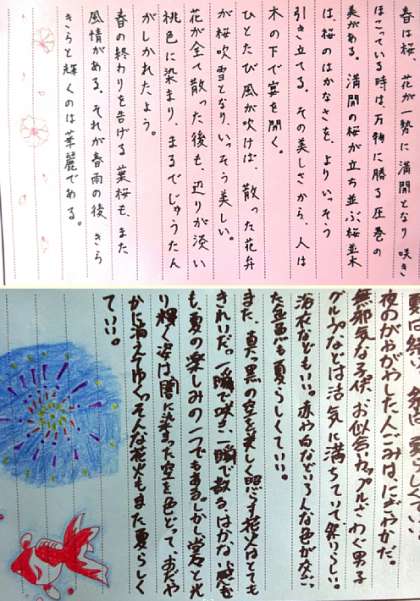 春は桜、花が一勢に満開となり咲き
ほこっている時は、万物に勝る圧巻の
美がある。満開の桜が立ち並ぶ桜並木
は、桜のはかなさを、よりいっそう
引き立てる。その美しさから、人は
木の下で宴を開く。
ひとたび風が吹けば、散った花弁
が桜吹雪となり、いっそう美しい。
花が全て散った後も、辺りが淡い
桃色に染まり、まるでじゅうたん
がしかれたよう。
春の終わりを告げる葉桜も、また
風情がある。それが春雨の後、きら
きらと輝くのは華麗である。
夜のがやがやした人ごみは、にぎやかだ。
無邪気な子供、お似合カップル、さわぐ男子
グループなどは活気に満ちていて、夏らしい。
浴衣などもいい。赤や白などいろんな色が交
た金魚も夏らしくていい。
また、真っ黒の空を美しく照らす花火はとても
きれいだ。一瞬で咲き、一瞬で散る。はかない
も夏の楽しみの一つでもある。しかし堂々と光
り輝く姿は闇に染まった空を色どって、
かに消えてゆく。そんな花火もまた夏らしく
ていい。